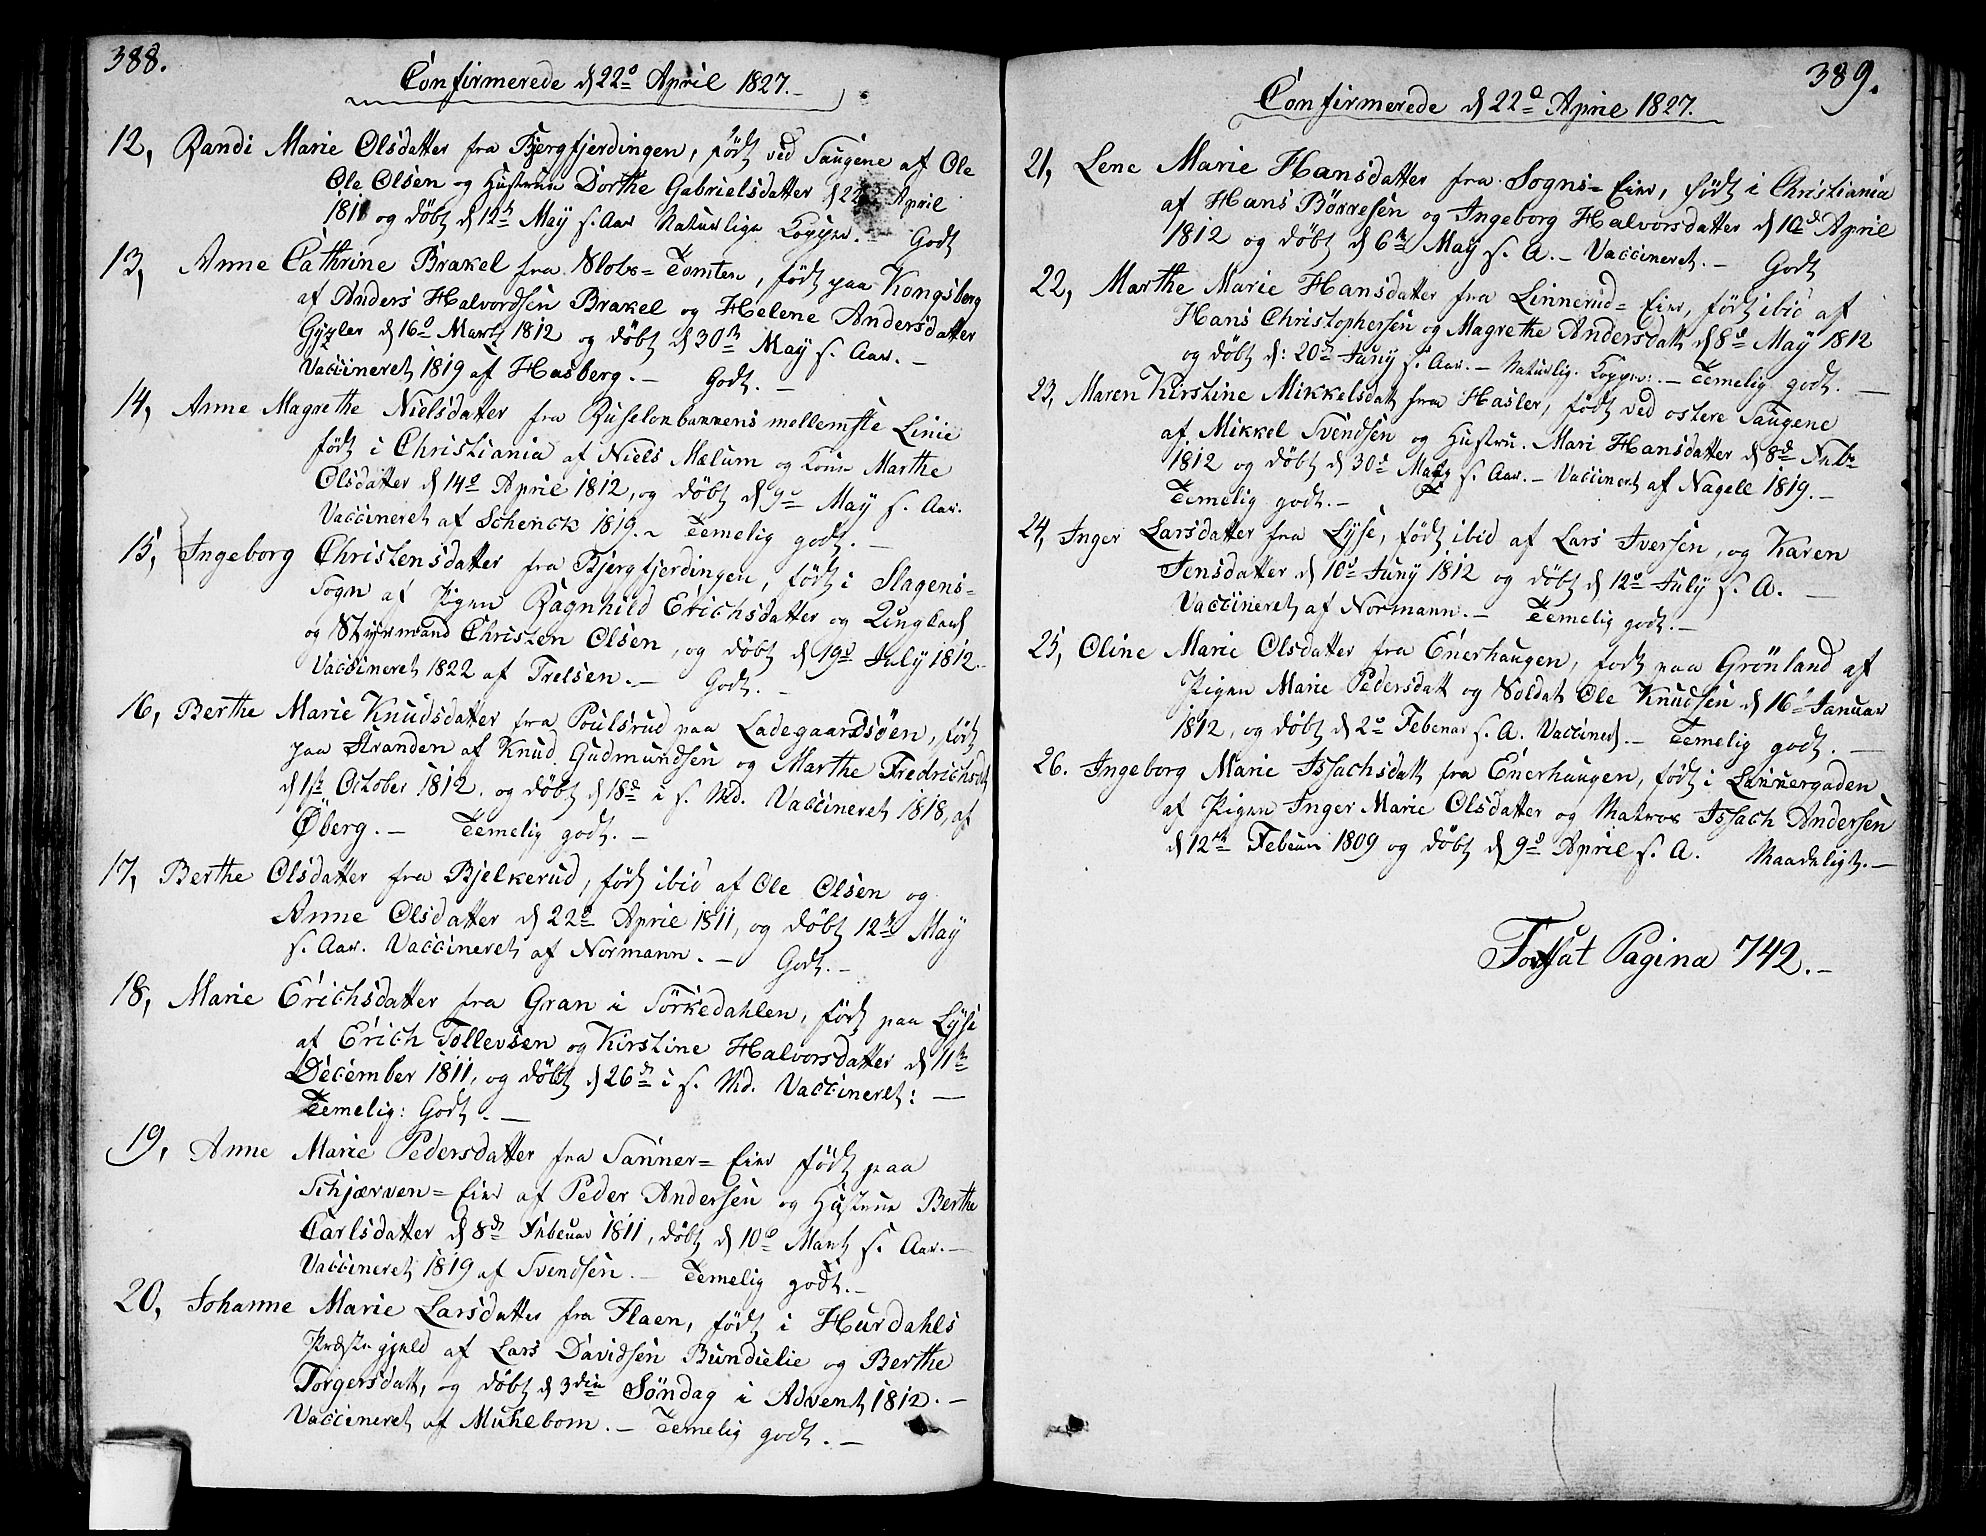 388.
Confirmerede d 22d April 1827.
12, Randi Marie Olsdatter fra Bjergfjerdingen, født ved Saugene af Ole
Ole Olsen og Hustrue Dorthe Gabrielsdatter d 22d April
1811 og døbt d 12te May s. Aar Naturlige Kopper. – Godt
13, Anne Cathrine Brakel fra Slots= Tomten, født paa Kongsberg
af Anders Halvordsen Brakel og Helene Andersdatter
d 16d Martz 1812 og døbt d 30te May s. Aar. –
Vaccineret 1819 af Hasberg. – Godt. –
14, Anne Magrethe Nielsdatter fra Ruselønbannens mellemste Linie
født i Christiania af Niels Mælum og Kone Marthe
Olsdatter d 14d April 1812, og døbt d 9de May s. Aar.
Vaccineret af Schenck 1819. – Temelig godt. –
15, Ingeborg Christensdatter fra Bjergfjerdingen, født i Slagens=
Sogn af Pigen Ragnhild Erichsdatter og Ungkarl
og Styrmand Christen Olsen, og døbt d 19d July 1812
Vaccineret 1822 af Trelsen. – Godt. –
16, Berthe Marie Knudsdatter fra Poulsrud paa Ladegaardsøen, født
paa Stranden af Knud Gudmundsen og Marthe Fredrichsdt
d 1st October 1812. og døbt d 18d i s. Md. Vaccineret 1818, af
Øberg. – Temelig godt. –
17, Berthe Olsdatter fra Bjelkerud, født ibid af Ole Olsen og
Anne Olsdatter d 22d April 1811, og døbt 12te May
s. Aar. Vaccineret af Normann. – Godt. –
18, Marie Erichsdatter fra Gran i Sørkedahlen, født paa Lyse
af Erich Tollevsen og Kirstine Halvorsdatter d 11te
December 1811, og døbt d 26de i s. Md. Vaccineret: –
Temelig: Godt. –
19, Anne Marie Pedersdatter fra Sanner= Eier født paa
Schjærven= Eier af Peder Andersen og Hustrue Berthe
Carlsdatter d 8de Februar 1811, døbt d 10d Martz s. Aar. –
Vaccineret 1819 af Svendsen. – Temelig godt. –
20, Johanne Marie Larsdatter fra Flaen, født i Hurdahls
Præstegjeld af Lars Davidsen Bundelie og Berthe
Torgersdatt, og døbt d 3die Søndag i Advent 1812. –
Vaccineret af Muhlbom. – Temelig godt. –
389.
Confirmerede d 22d April 1827.
21, Lene Marie Hansdatter fra Sogns= Eier, født i Christiania
af Hans Børresen og Ingeborg Halvorsdatter d 10d April
1812 og døbt d 6te May s. A. – Vaccineret. – Godt
22, Marthe Marie Hansdatter fra Linnerud= Eier, født ibid af
Hans Christophersen og Magrethe Andersdatt d 8d May 1812
og døbt d: 20d Juny s. Aar. – Naturlig. Kopper. – Temelig godt. –
23, Maren Kirstine Mikkelsdatt fra Hasler, født ved østere Saugene
af Mikkel Svendsen og Hustru. Mari Hansdatter d 8d Febr
1812 og døbt d 30d s. Aar. – Vaccineret af Nagell 1819. –
Temelig godt. –
24, Inger Larsdatter fra Lyse, født ibid af Lars Iversen, og Karen
Jensdatter d 10d Juny 1812 og døbt d 12d July s. A. –
Vaccineret af Normann. – Temelig godt. –
25, Oline Marie Olsdatter fra Enerhaugen, født paa Grønland af
Pigen Marie Pedersdatt og Soldat Ole Knudsen d 16d Januar
1812, og døbt d 2d Febenar s. A. Vaccineret. – Temelig godt. –
26. Ingeborg Marie Issachsdatt fra Enerhaugen, født i Lannergaden
af Pigen Inger Marie Olsdatter og Matros Issach Andersen
d 12te Februar 1809 og døbt d 9d April s. A. Maadeligt. –
Fortsat Pagina 742. –